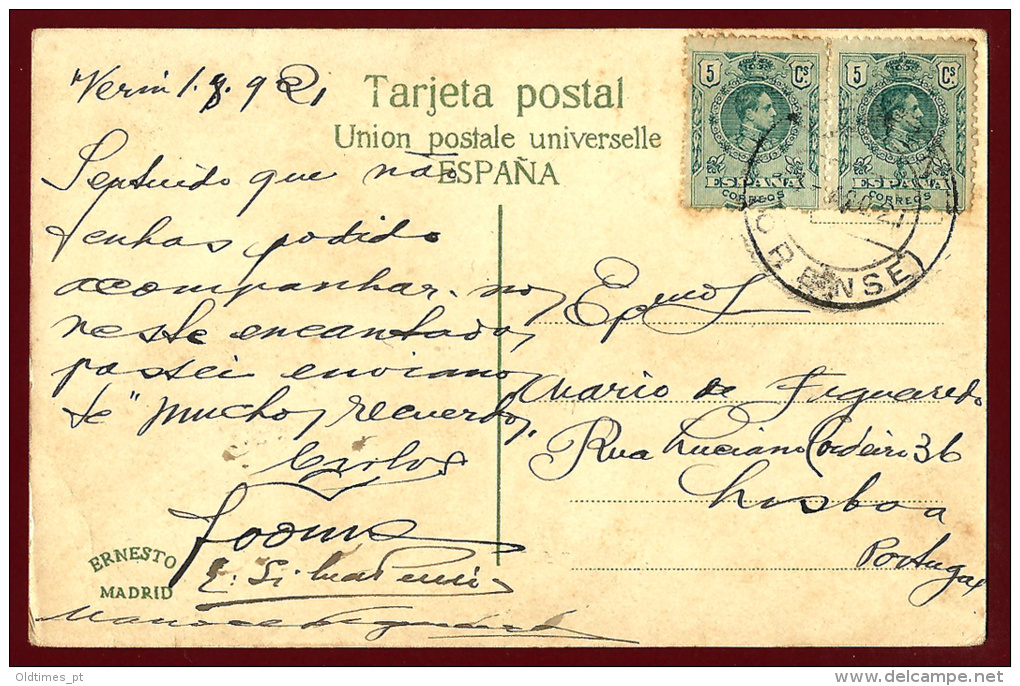 Tarjeta postal
Union postale universelle
ESPAÑA
5 Cs
ESPAÑA
CORREOS
5 Cs
ESPAÑA
CORREOS
(ORENSE)
Verin
Sentindo que não
tenhas podido
acompanhar-nos
neste encantado
passei enviamos
te "muchos recuerdos,
Carlos
Mario de Figueiredo
Rua Luciano Cordeiro 36
Lisboa
Portugal
ERNESTO
MADRID
Oldtimes_pt
delcampe.net